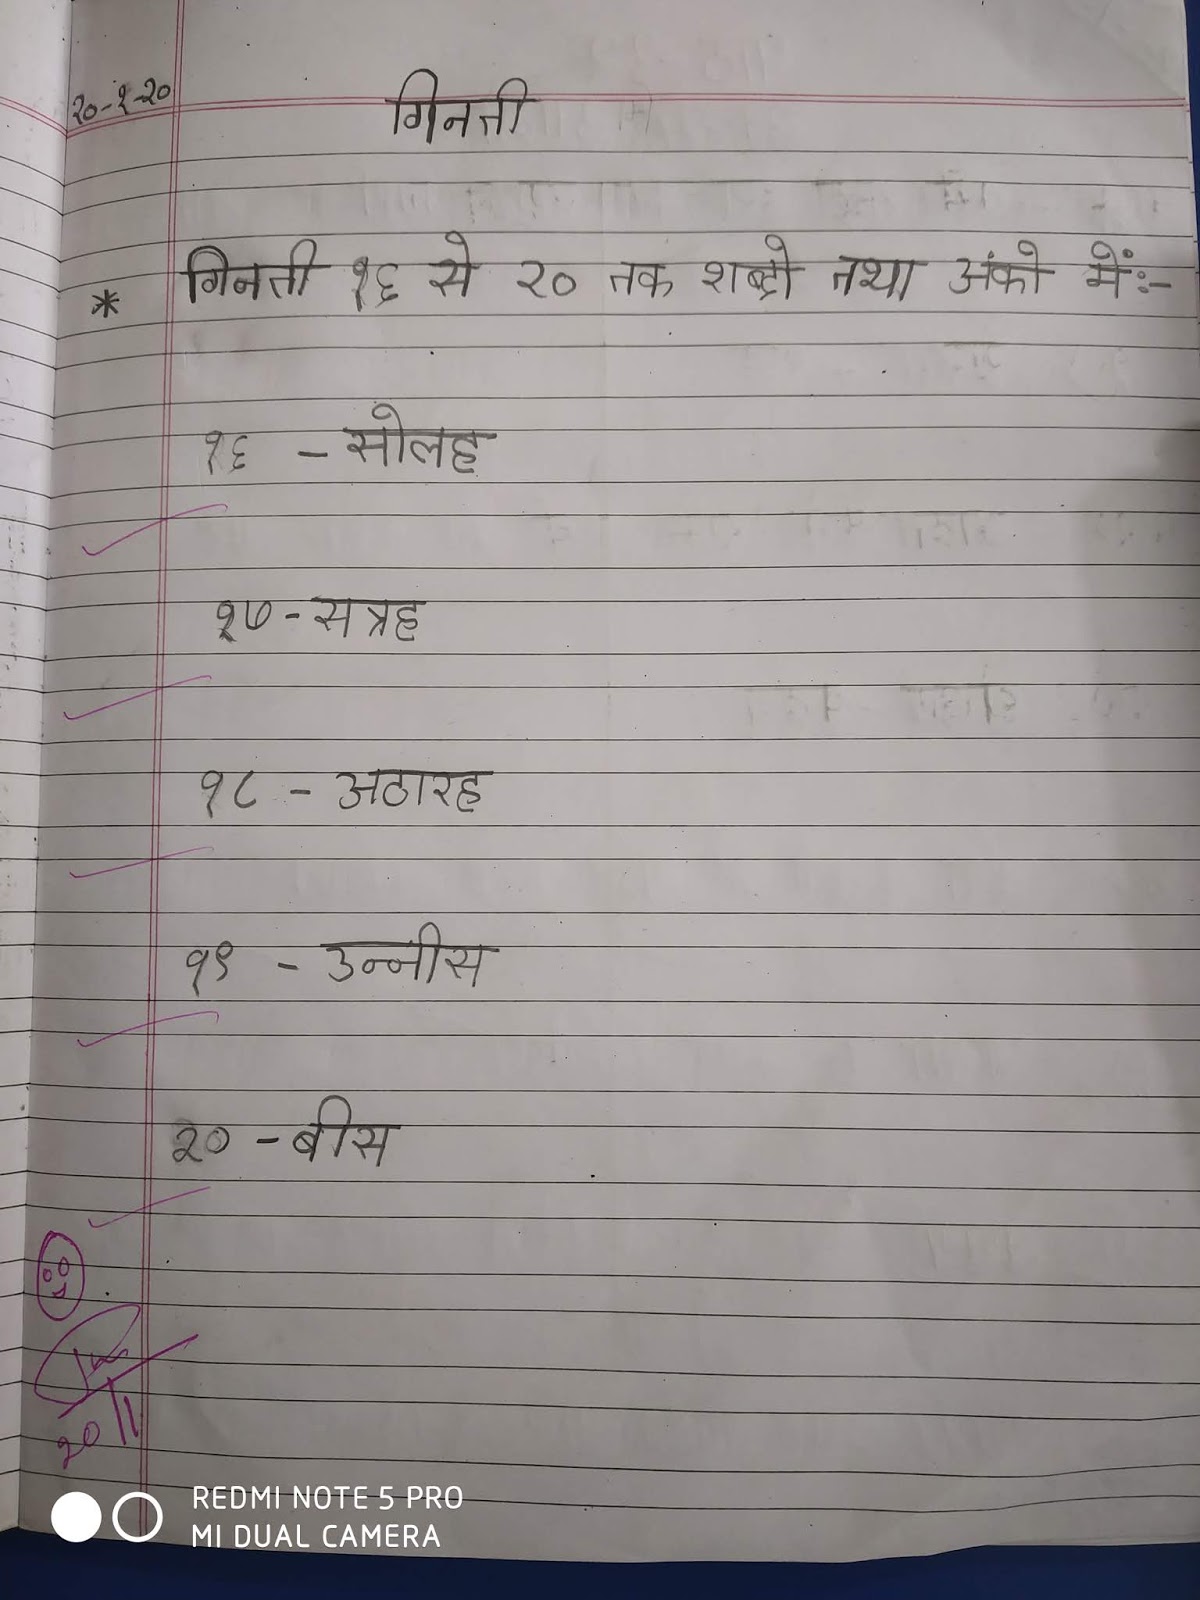 २०-१-२०
गिनती
* गिनती १६ से २० तक शब्दो तथा अंको में:-
१६ - सोलह
१७ - सत्रह
१८ - अठारह
१९ - उन्नीस
२० - बीस
20/1
REDMI NOTE 5 PRO
MI DUAL CAMERA